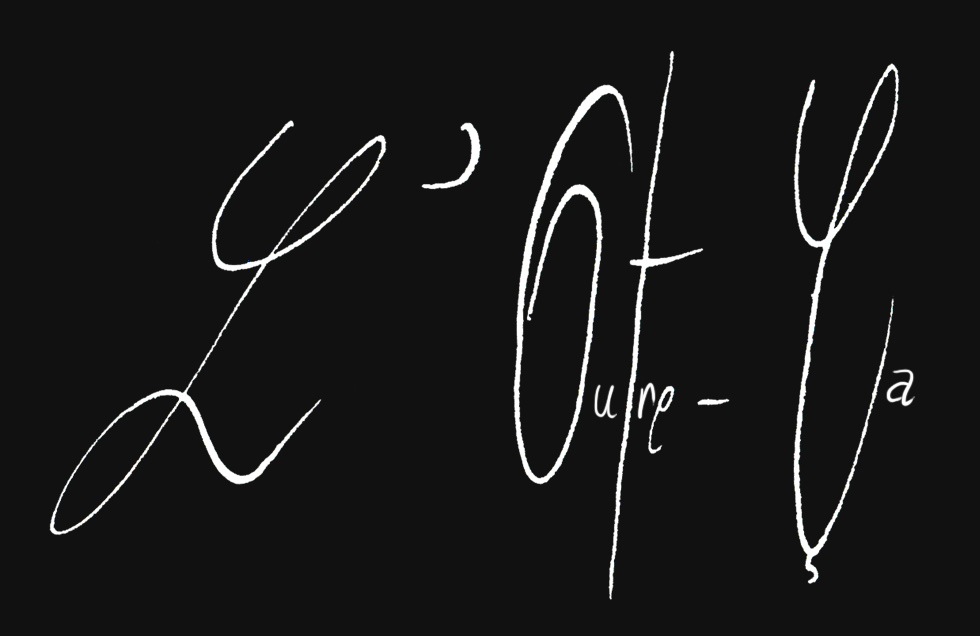 L'Outre-Ça